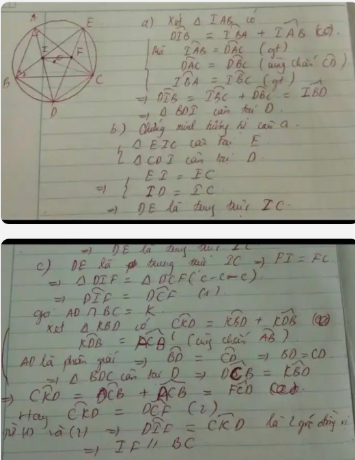 A
E
I
F
B
C
D
a) Xét Δ IAB có
DÎB = IBA + IAB
Mà IAB = DAC (gt)
DAC = DBC (cùng chắn CD)
IBA = IBC (gt)
=> DIB = IBC + DBC = IBD
=> Δ BDI cân tại D.
b) Chứng minh tương tự câu a.
Δ EIC cân tại E
Δ CDI cân tại D.
=> EI = EC
ID = DC
=> DE là trung trực IC.
=> DE là trung trực IC
c) DE là trung trực IC => FI = FC
=> Δ DIF = Δ DCF (c-c-c)
=> DIF = DCF (1)
gọi AD ∩ BC = K
Xét Δ KBD có CKD = KBD + KDB
KDB = ACB (cùng chắn AB)
AD là phân giác => BD = CD => BD = CD
=> Δ BDC cân tại D => DCB = KBD
=> CKD = DCB + ACB = FCD
Hay CKD = DCF (2)
Từ (1) và (2) => DIF = CKD là 2 góc đồng vị
=> IF // BC